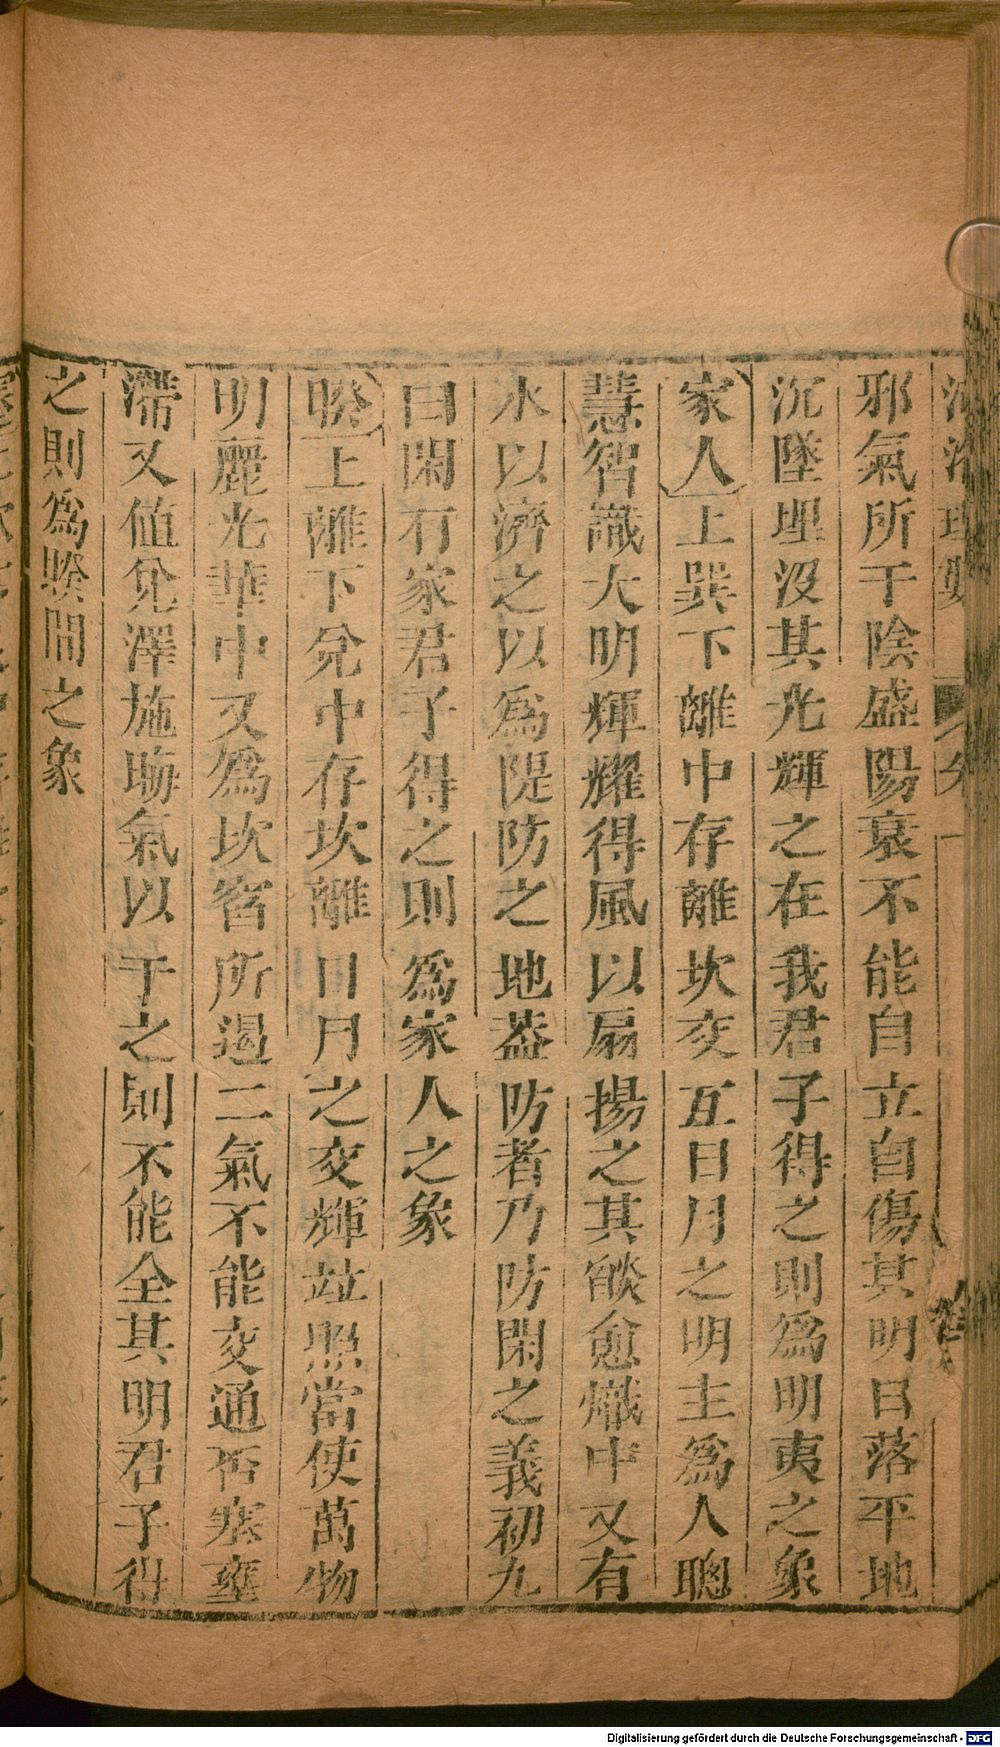 邪氣所干陰盛陽衰不能自立自傷其明日落平地
沉墜埋沒其光輝之在我君子得之則爲明夷之象
家人上巽下離中存離坎交互日月之明主爲人聰
慧智識大明輝耀得風以扇揚之其燄愈熾中又有
水以濟之以爲隄防之地葢防者乃防閑之義初九
曰閑有家君子得之則爲家人之象
睽上離下兌中存坎離日月之交輝竝照當使萬物
明麗光華中又爲坎窞所遏二氣不能交通否塞壅
滯又值兌澤施晦氣以干之則不能全其明君子得
之則爲睽間之象
Digitalisierung gefördert durch die Deutsche Forschungsgemeinschaft - DFG